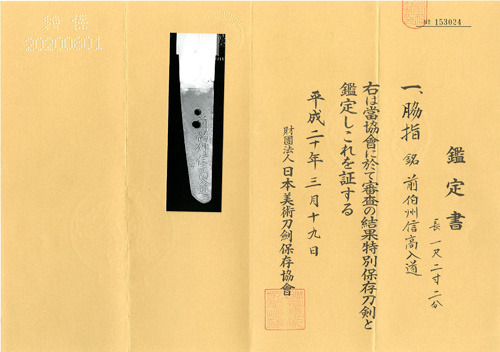 № 153024
鑑定書
一、脇指 銘 前伯州信高入道
長 一尺二寸二分
右は當協會に於て審査の結果特別保存刀劍と
鑑定しこれを証する
平成二十年三月十九日
財團法人 日本美術刀劍保存協會
20200601